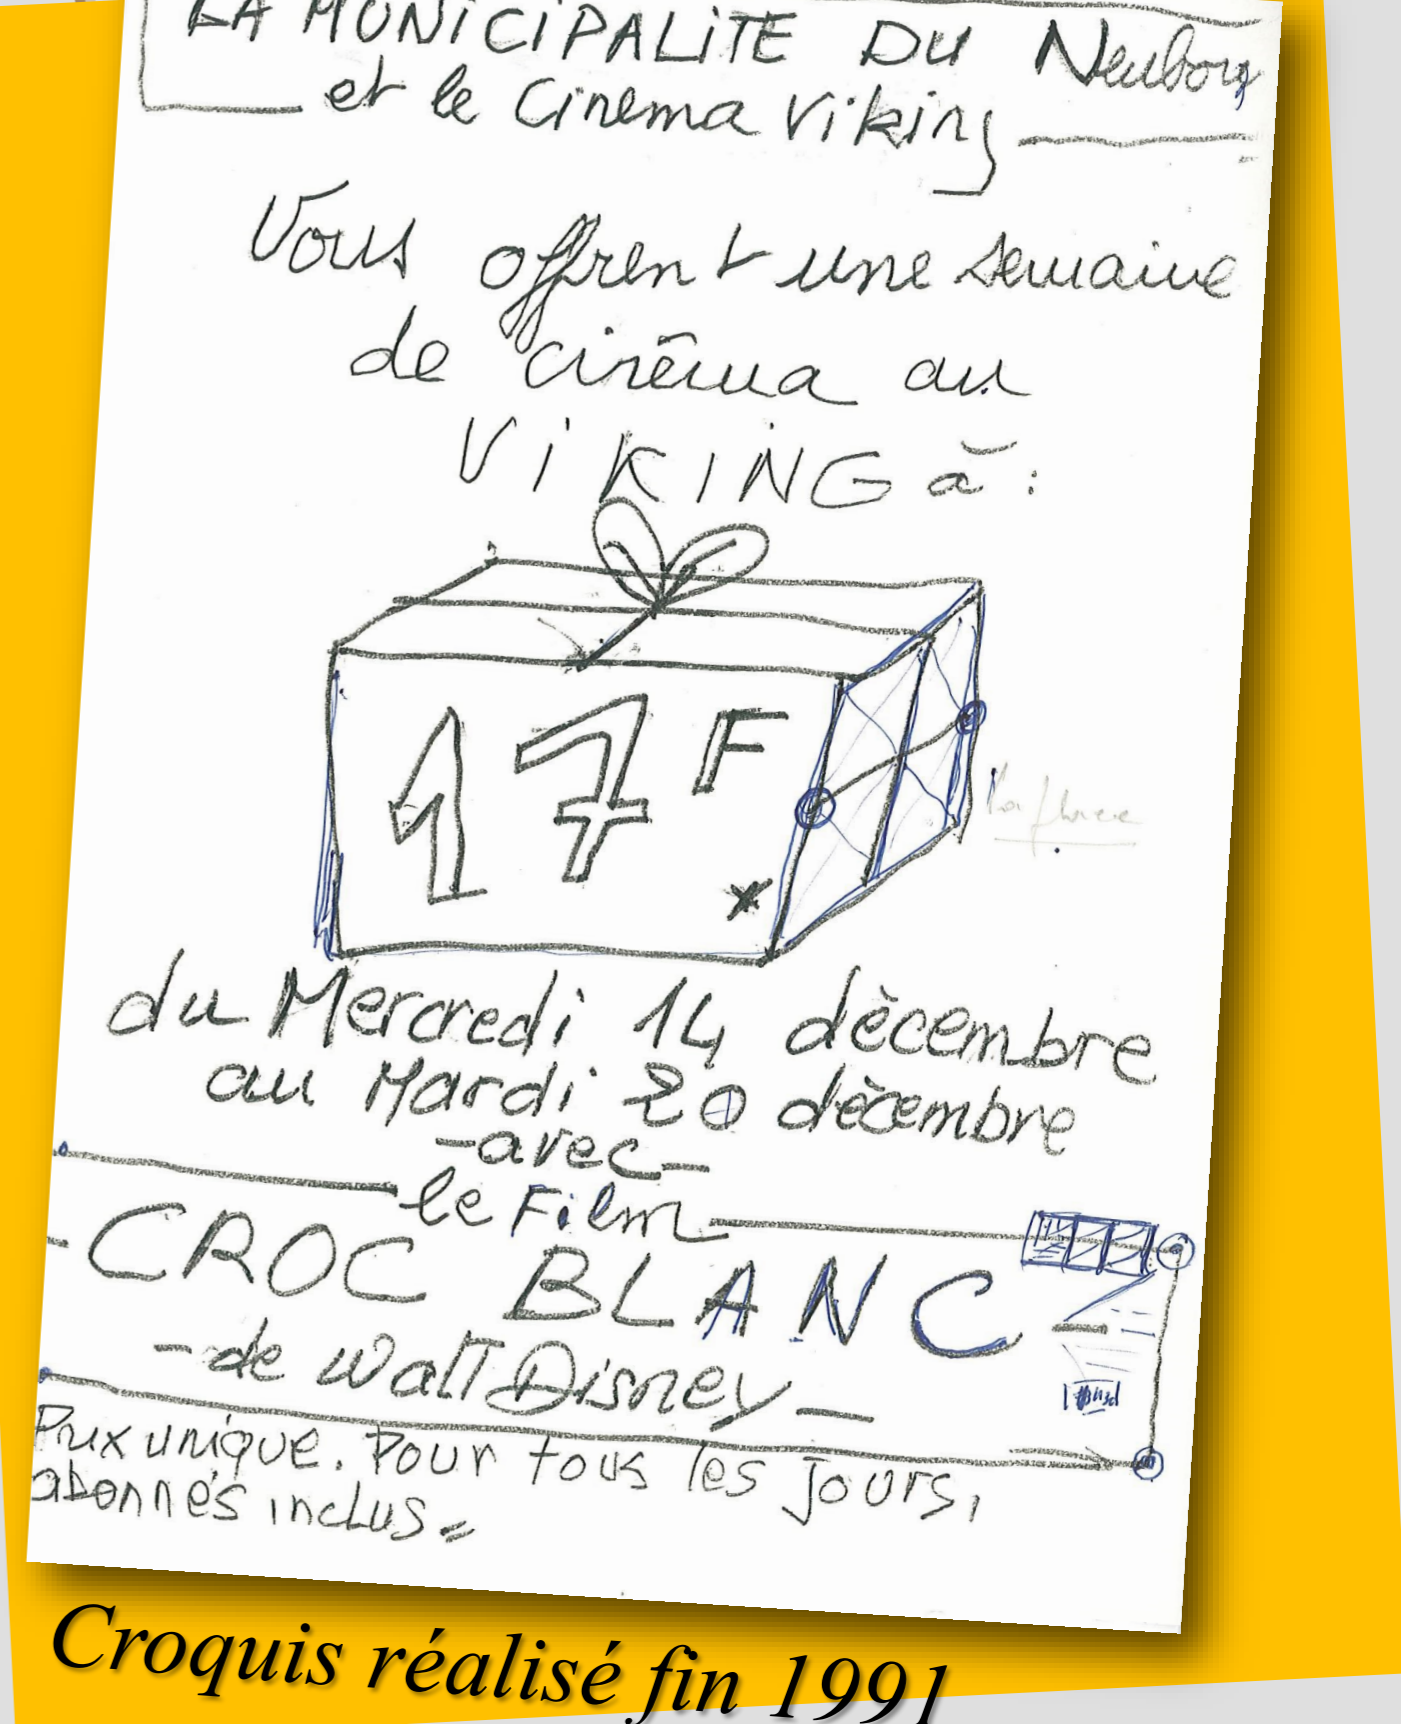 LA MUNICIPALITE DU Neubourg
et le Cinema Viking
Vous offrent une semaine
de cinéma au
ViKING à :
17 F
*
du Mercredi 14 décembre
au Mardi 20 décembre
-avec-
le Film
- CROC BLANC -
- de Walt Disney -
Prix unique. Pour tous les jours,
abonnés inclus.=
Croquis réalisé fin 1991